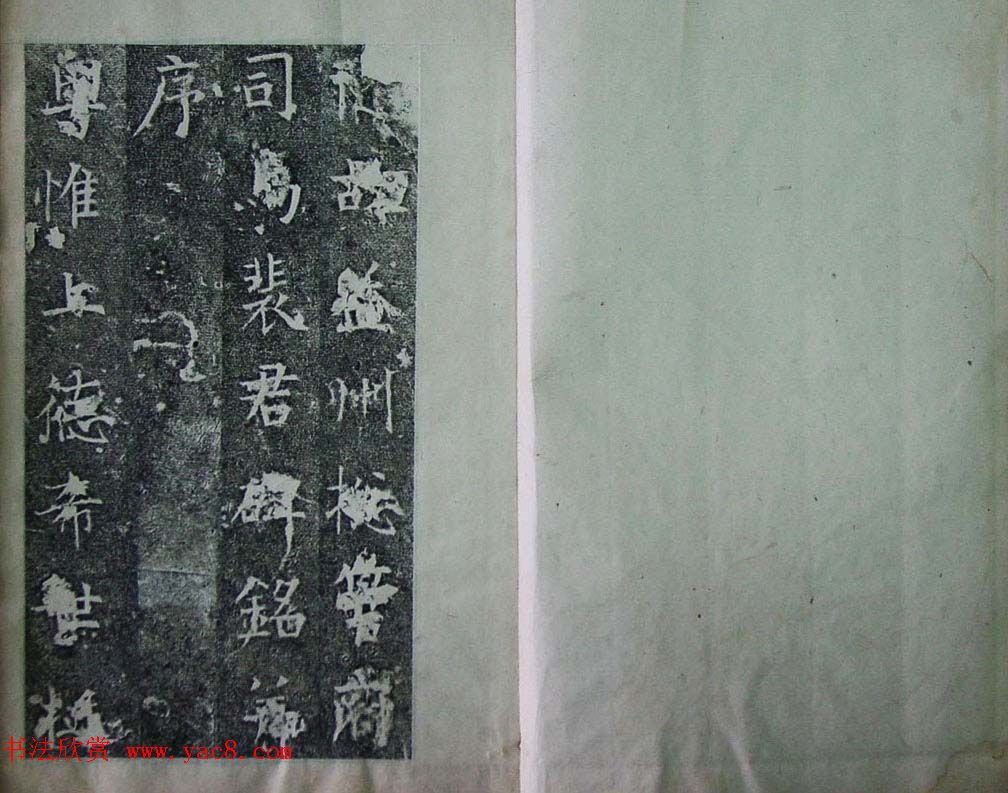 故益州揔管府
司馬裴君碑銘并
序
粵惟上德希世
书法欣赏 www.yac8.com